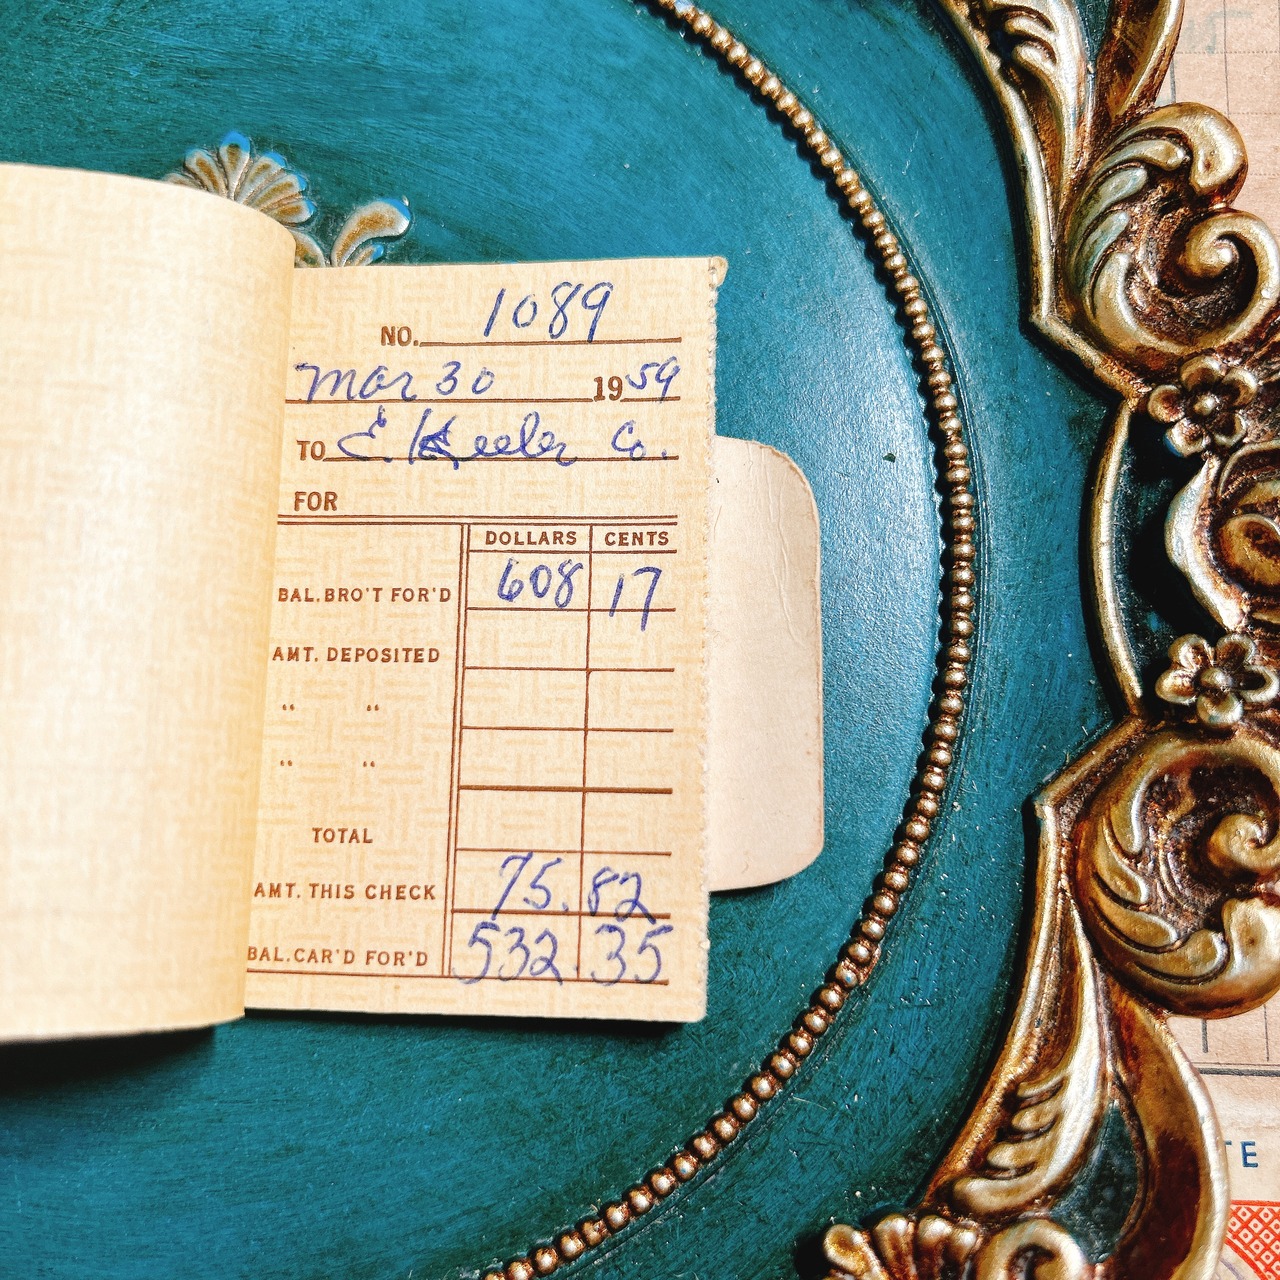 NO. 1089
Mar 30 1959
TO E. Keeler Co.
FOR
DOLLARS CENTS
BAL. BRO'T FOR'D 608 17
AMT. DEPOSITED
" "
" "
TOTAL
AMT. THIS CHECK 75.82
BAL. CAR'D FOR'D 532.35
TE